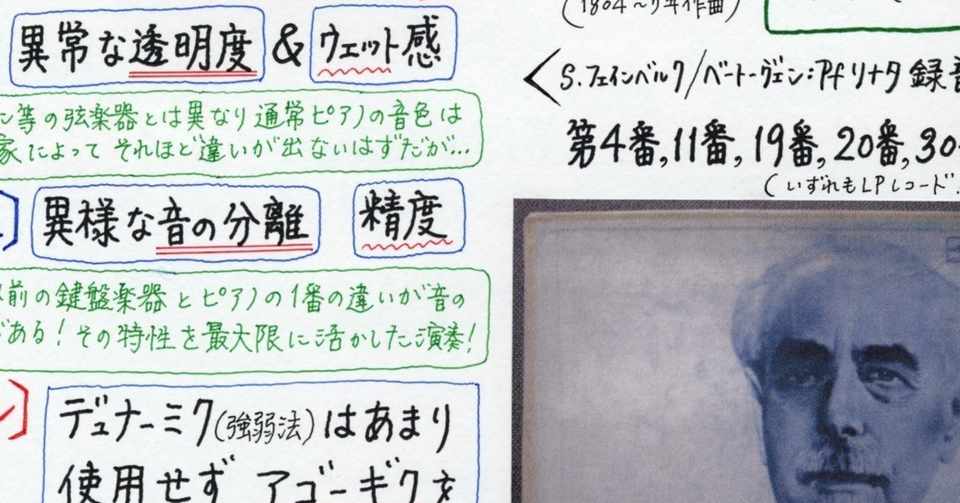 異常な透明度 & ウェット感
等の弦楽器とは異なり通常ピアノの音色は
家によってそれほど違いが出ないはずだが...
異様な音の分離 精度
前の鍵盤楽器とピアノの1番の違いが音の
ある!その特性を最大限に活かした演奏!
デュナーミク(強弱法)はあまり
使用せず アゴーギクを
(1804~5年作曲)
<S.フェインベルク/ベートーヴェン:Pfソナタ 録音
第4番,11番,19番,20番,30
(いずれもLPレコード